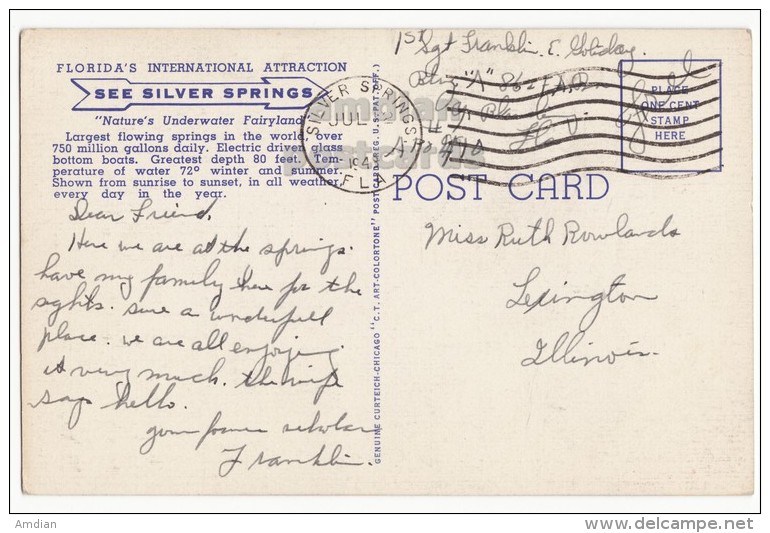 FLORIDA'S INTERNATIONAL ATTRACTION
SEE SILVER SPRINGS
"Nature's Underwater Fairyland
Largest flowing springs in the world, over
750 million gallons daily. Electric driven glass
bottom boats. Greatest depth 80 feet. Tem-
perature of water 72° winter and summer.
Shown from sunrise to sunset, in all weather,
every day in the year.
Dear Friend,
Here we are at the springs.
have my family here for the
sights. sure a wonderfull
place. we are all enjoying
it very much. the wife
says hello.
your former scholar
Franklin.
GENUINE CURTEICH-CHICAGO "C.T. ART-COLORTONE" POST CARD (REG. U.S. PAT. OFF.)
SILVER SPRINGS
JUL 2
194
FLA.
1st Sgt Franklin E.
Btry "A"
Free
PLACE
ONE CENT
STAMP
HERE
POST CARD
Miss Ruth Rowlands
Lexington
Illinois.
amdian
postcards
Amdian
www.delcampe.net